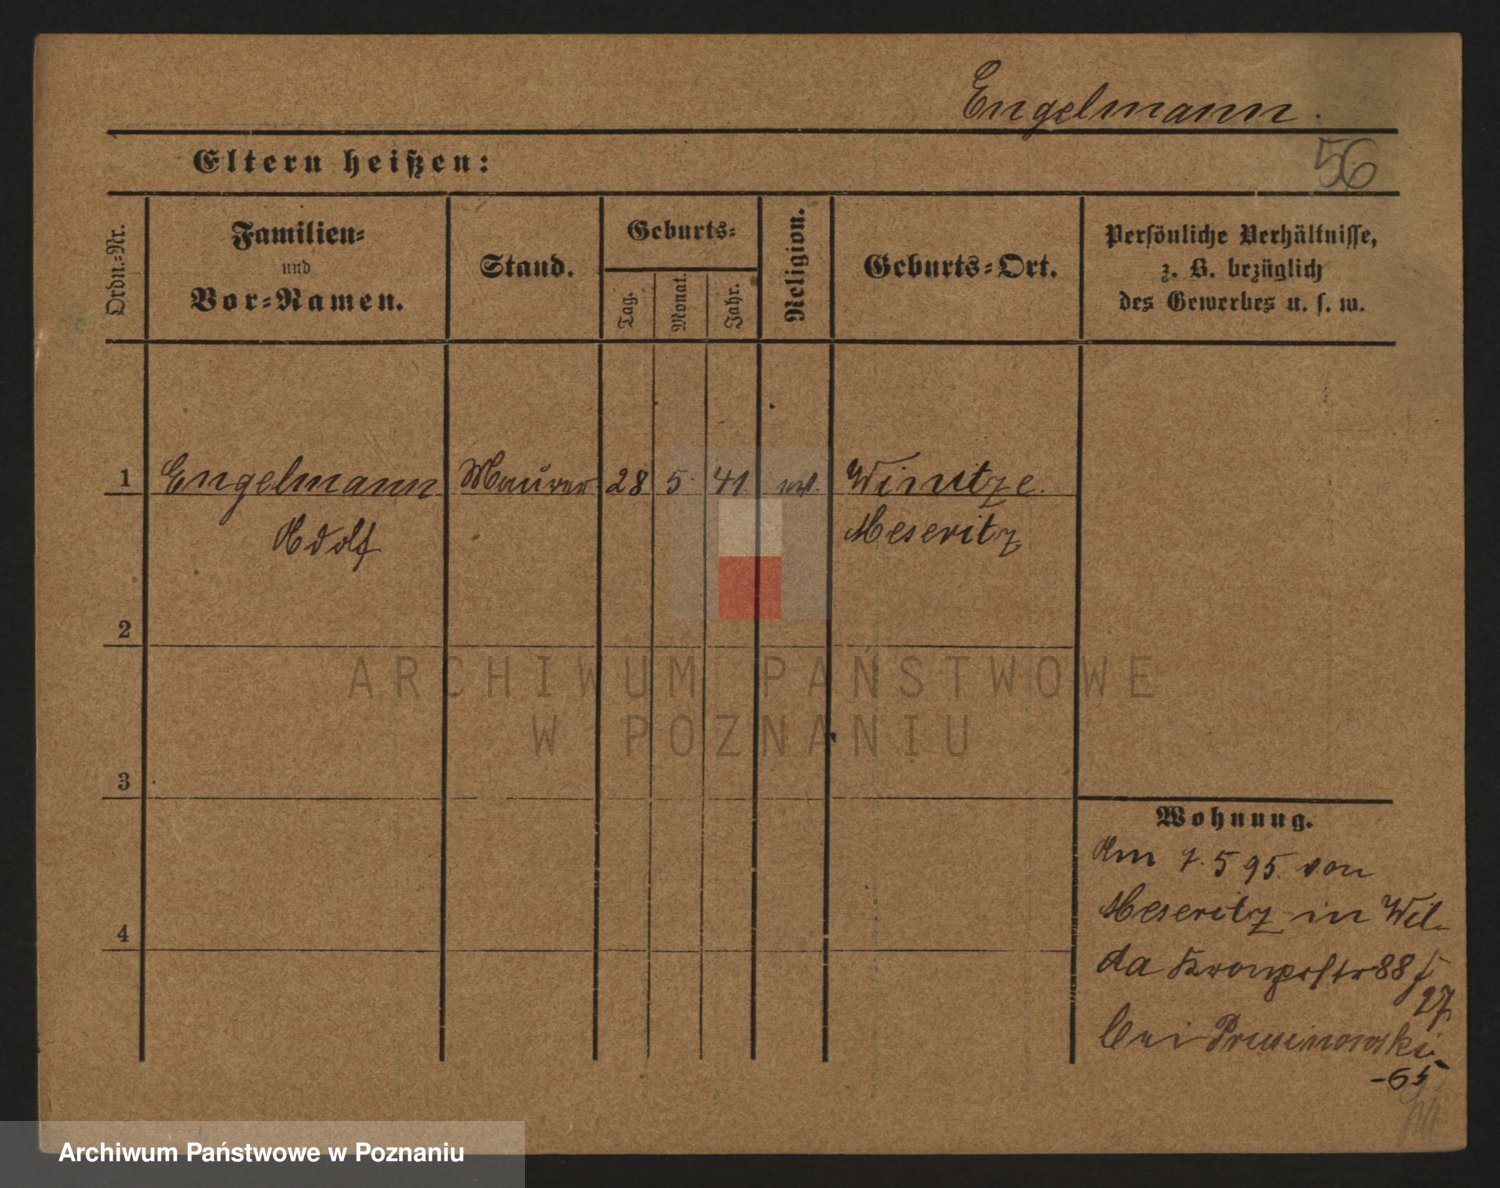 Engelmann.
56
Eltern heißen:
Ordn.-Nr.
Familien-
und
Vor-Namen.
Stand.
Geburts-
Tag.
Monat.
Jahr.
Religion.
Geburts-Ort.
Persönliche Verhältnisse,
z. B. bezüglich
des Gewerbes u. s. w.
1 Engelmann Maurer 28 5 41 Winitze.
Adolf Meseritz
2
ARCHIWUM PAŃSTWOWE
W POZNANIU
3
Wohnung.
Am 7. 5 95. von
Meseritz in Wil-
4
da 88
27
bei
-65
Archiwum Państwowe w Poznaniu